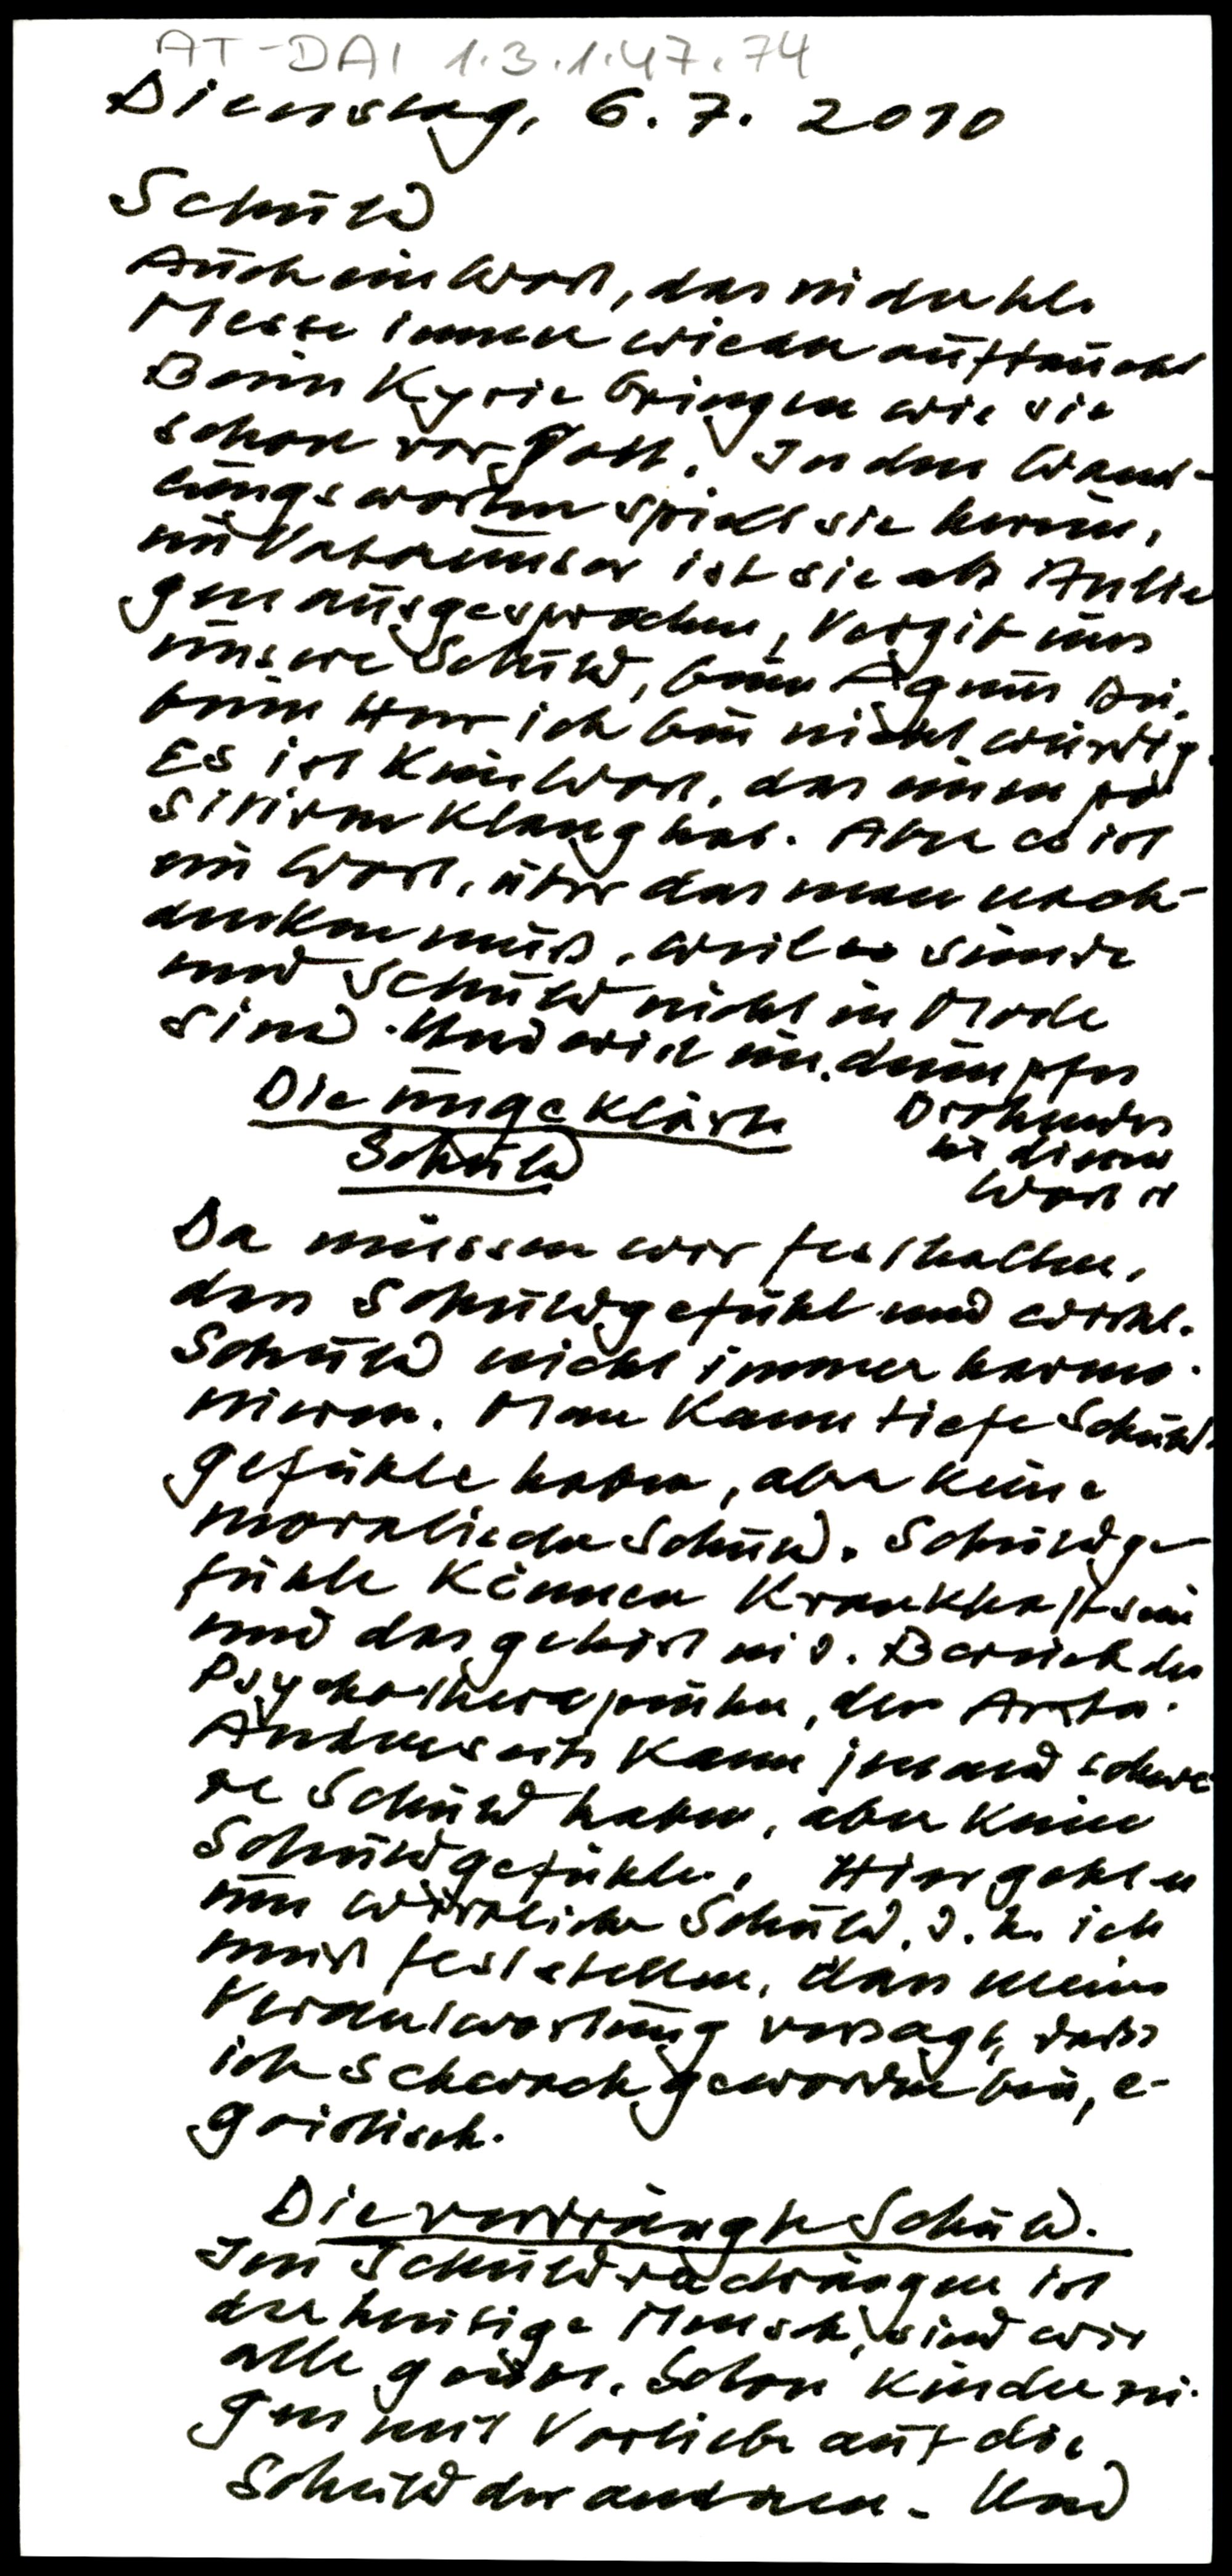 AT-DAI 1.3.1.47.74
Dienstag, 6. 7. 2010
Schuld
Auch ein Wort, das in der hl.
Messe immer wieder auftaucht
Beim Kyrie bringen wir sie
schon vor Gott. In den Wand-
lungsworten spielt sie herein,
im Vaterunser ist sie als Anlie
gen ausgesprochen, Vergib uns
unsere Schuld, beim Agnus Dei,
beim Herr ich bin nicht würdig.
Es ist kein Wort, das einen po
sitiven Klang hat. Aber es ist
ein Wort, über das man nach-
denken muß, weil Sünde
und Schuld nicht in Mode
sind. Und weil ein dumpfes
Drohendes
in diesem
Wort ist
Die ungeklärte
Schuld
Da müssen wir festhalten,
dass Schuldgefühl und wirkl.
Schuld nicht immer harmo-
nieren. Man kann tiefe Schuld-
gefühle haben, aber keine
moralische Schuld. Schuldge-
fühle können krankhaft sein
und das gehört in d. Bereich des
Psychotherapeuten, der Ärzte.
Andrerseits kann jemand schwe
re Schuld haben, aber keine
Schuldgefühle. Hier geht es
um wirkliche Schuld, d. h. ich
muß feststellen, dass meine
Verantwortung versagt, dass
ich schwach geworden bin, e-
goistisch.
Die verdrängte Schuld.
Im Schuldverdrängen ist
der heutige Mensch, sind wir
alle geübt. Schon Kinder zei-
gen mit Vorliebe auf die
Schuld der anderen. Und